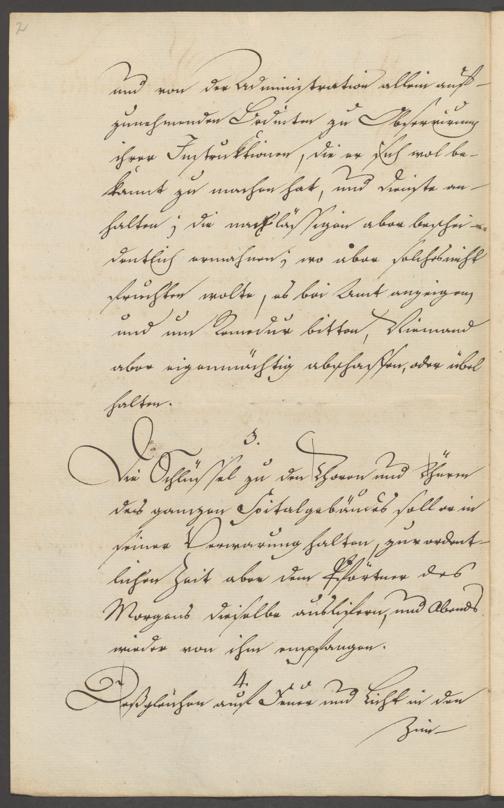 2
und von der Administration allein auf-
zunehmenden Bedienten zu Observirung
ihrer Instruktionen, die er sich wol be-
kannt zu machen hat, und Dienste an-
halten; die nachlässigen aber beschei-
dentlich ermahnen; wo aber solches nicht
fruchten wolte, es bei Amt anzeigen,
und um Remedur bitten, Niemand
aber eigenmächtig abschaffen, oder übel
halten.
3.
Die Schlüssel zu den Thoren und Thüren
des ganzen Spitalgebäudes soll er in
seiner Verwarung halten, zur ordent-
lichen Zeit aber dem Pförtner des
Morgens dieselbe ausliefern, und Abends
wieder von ihm empfangen.
4.
Deßgleichen auf Feuer und Licht in den
Zim-